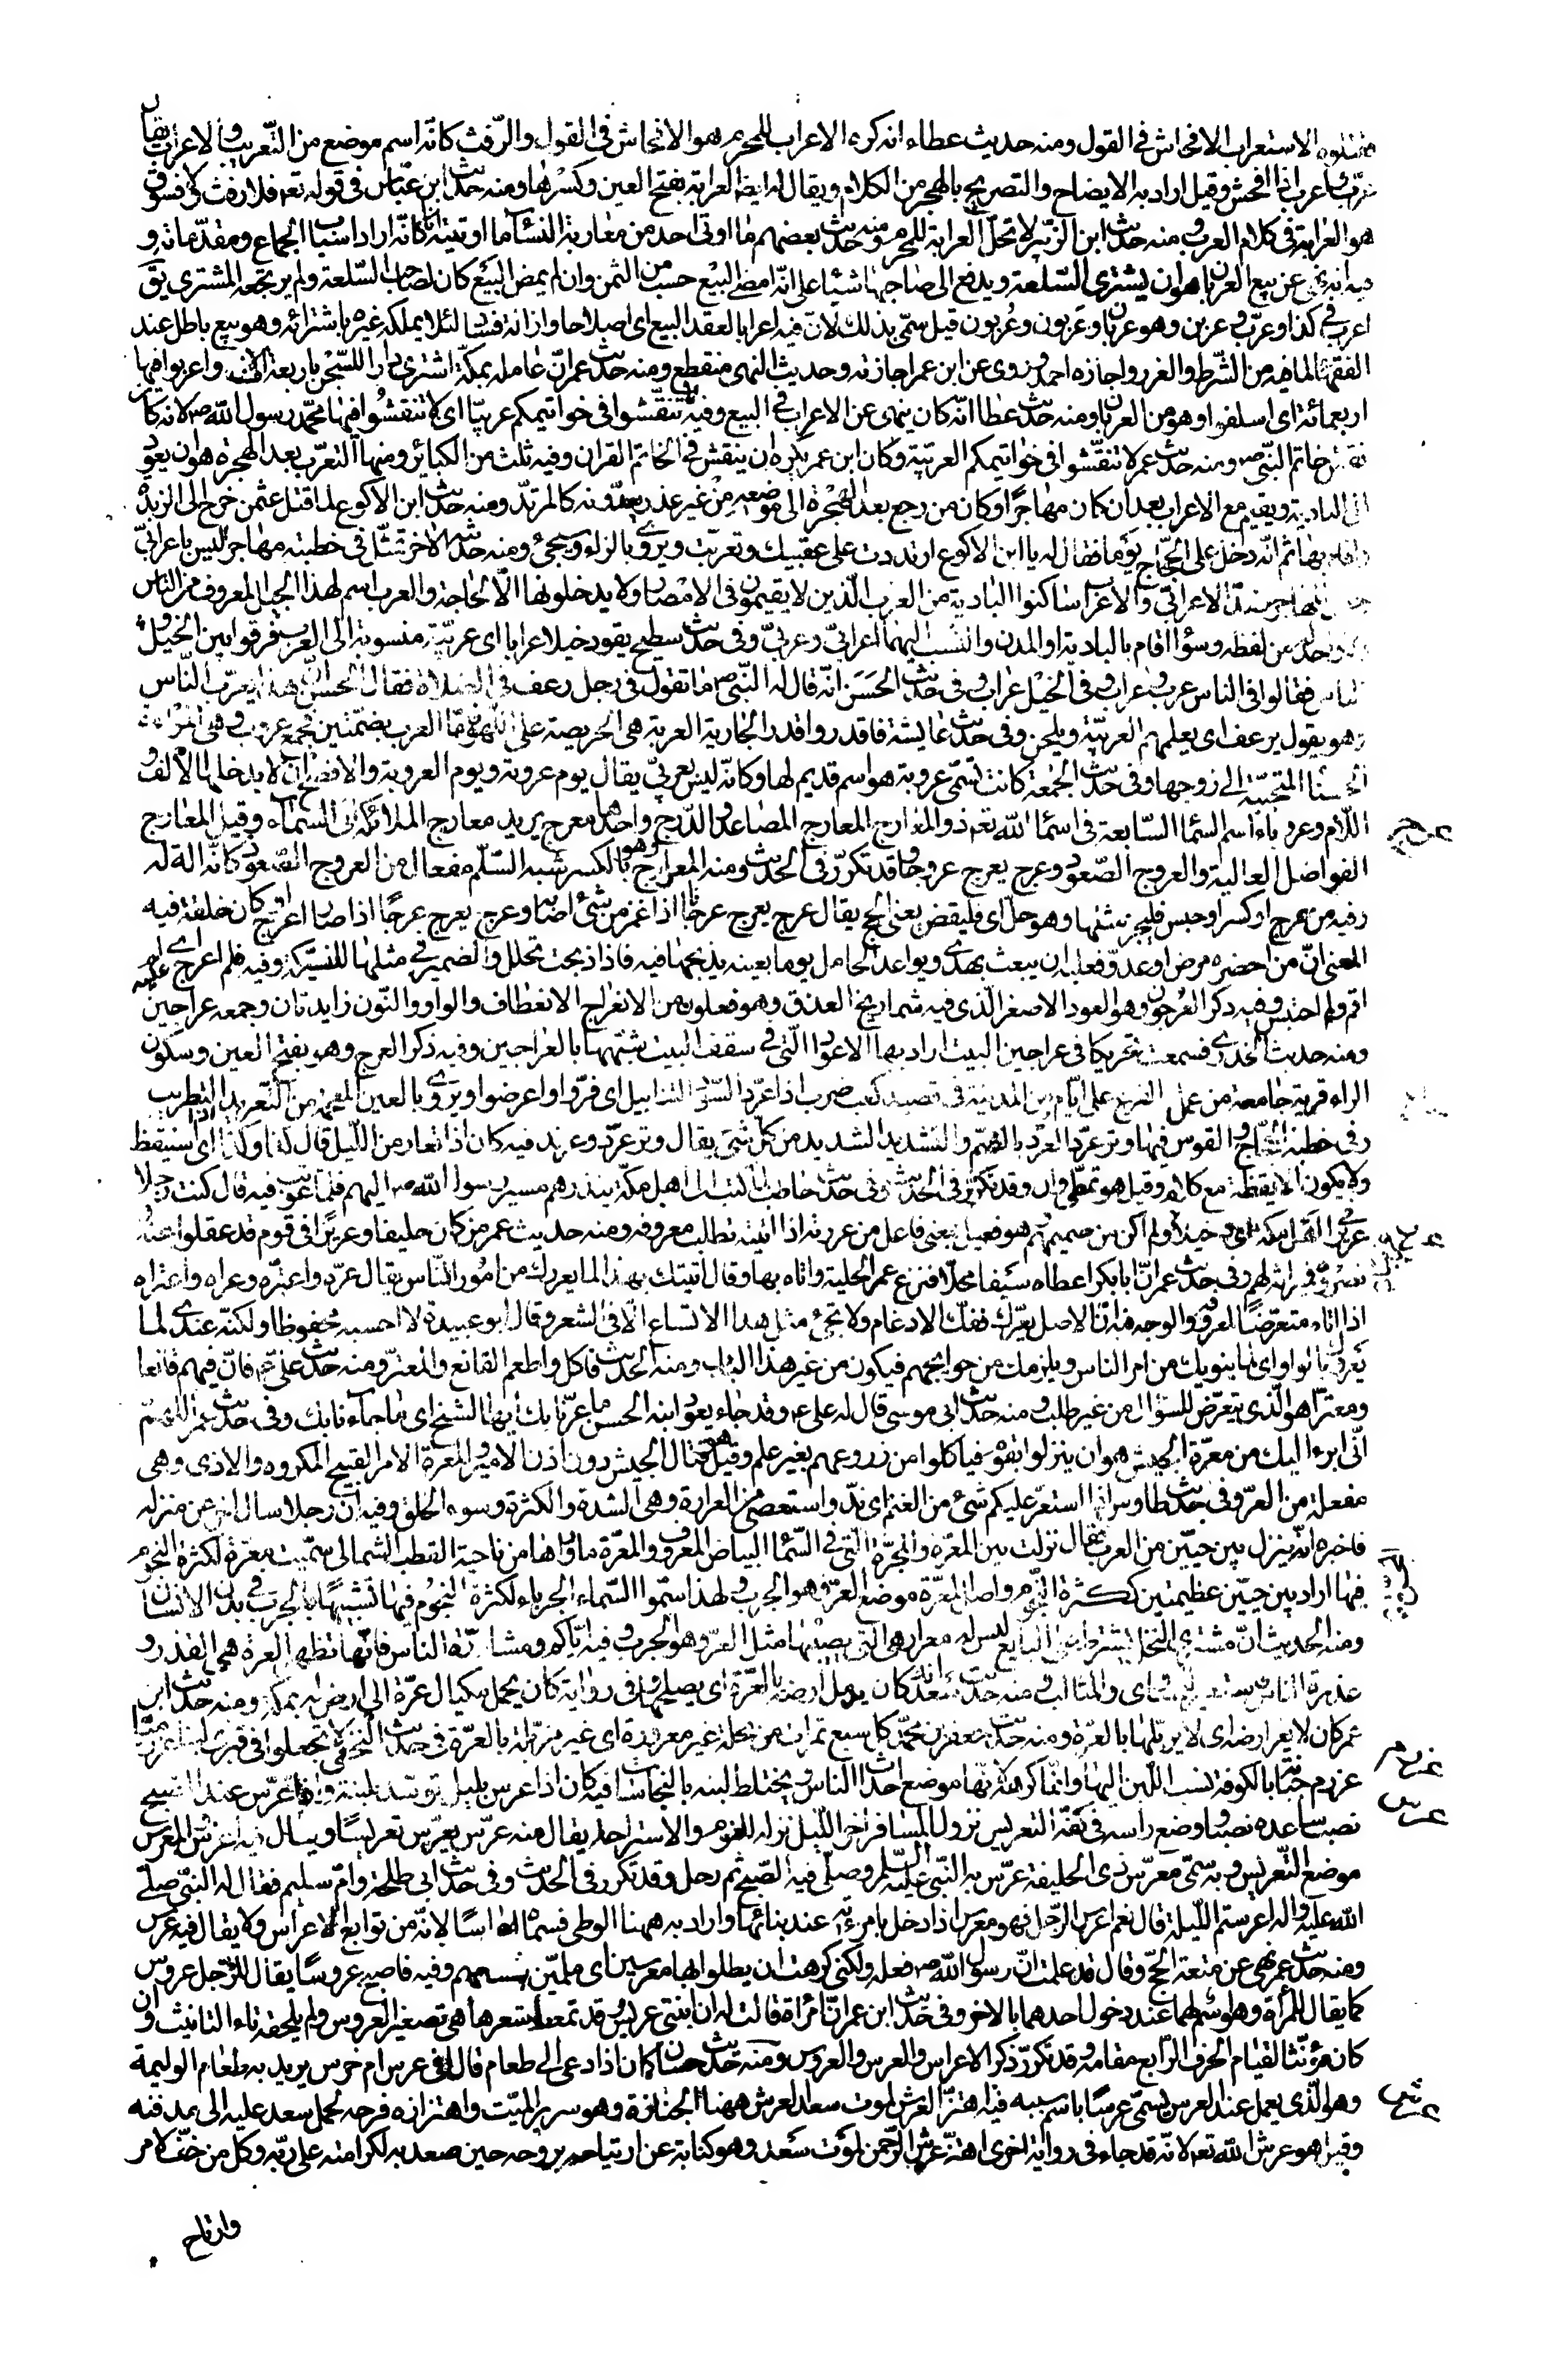 الاستعراب الافحاش في القول ومنه حديث عطاء انه كره الاعراب للمحرم هو الافحاش في القول والرفث كانه اسم موضع من التعريب والاعراب يقال
عرب واعرب اذا افحش وقيل اراد به الايضاح والتصريح بالهجر من الكلام ويقال له ايضا العرابة بفتح العين وكسرها ومنه حديث ابن عباس في قوله تعم فلا رفث ولا فسوق
هو العرابة في كلام العرب ومنه حديث ابن الزبير لا تحل العرابة للمحرم ومنه حديث بعضهم ما اوتي احد من معاربة النساء ما اوتيته انا كانه اراد اسباب الجماع ومقدماته و
فيه انه نهى عن بيع العربان هو ان يشتري السلعة ويدفع الى صاحبها شيئا على انه ان امضى البيع حسب من الثمن وان لم يمض البيع كان لصاحب السلعة ولم يرتجعه المشتري يق
اعرب في كذا وعرب وعربن وهو عربان وعربون وعربون قيل سمي بذلك لان فيه اعرابا لعقد البيع اي اصلاحا وازالة فساد لئلا يملكه غيره باشترائه وهو بيع باطل عند
الفقهاء لما فيه من الشرط والغرر واجازه احمد وروى عن ابن عمر اجازته وحديث النهي منقطع ومنه حديث عمر ان عامله بمكة اشترى دارا للسجن باربعة الاف واعربوا فيها
اربعمائة اي اسلفوا وهو من العربان ومنه حديث عطا انه كان ينهى عن الاعراب في البيع وفيه لا تنقشوا في خواتيمكم عربيا اي لا تنقشوا فيها محمد رسول الله ص لانه كان
نقش خاتم النبي ص ومنه حديث عمر لا تنقشوا في خواتيمكم العربية وكان ابن عمر يكره ان ينقش في الخاتم القران وفيه ثلث من الكبائر ومنها التعرب بعد الهجرة هو ان يعود
الى البادية ويقيم مع الاعراب بعد ان كان مهاجرا وكان من رجع بعد الهجرة الى موضعه من غير عذر يعدونه كالمرتد ومنه حديث ابن الاكوع لما قتل عثمن خرج الى الربذة
واقام بها ثم انه دخل على الحجاج يوما فقال له يا ابن الاكوع ارتددت على عقبيك وتعربت ويروى بالزاء وسيجئ ومنه حديثه الاخر تمثل في خطبته مهاجر ليس باعرابي
الاعرابي والاعراب ساكنوا البادية من العرب الذين لا يقيمون في الامصار ولا يدخلونها الا لحاجة والعرب اسم لهذا الجيل المعروف من الناس
ولا واحد له من لفظه وسواء اقام بالبادية او المدن والنسب اليهما اعرابي وعربي وفي حديث سطيح يقود خيلا عرابا اي عربية منسوبة الى العرب فرقوا بين الخيل و
الناس فقالوا في الناس عرب واعراب وفي الخيل عراب وفي حديث الحسن انه قال له النبي ص ما تقول في رجل رعف في الصلاة فقال الحسن ان هذا يعرب الناس
وهو يقول يرعف اي يعلمهم العربية ويلحن وفي حديث عايشة فاقدروا قدر الجارية العربة هي الحريصة على اللهو فاما العرب بضمتين فجمع عروب وهي المراة
الحسناء المتحببة الى زوجها وفي حديث الجمعة كانت تسمى عروبة هو اسم قديم لها وكانه ليس بعربي يقال يوم عروبة ويوم العروبة والافصح ان لا يدخلها الالف و
اللام وعروباء اسم السماء السابعة في اسماء الله تعم ذو المعارج المعارج المصاعد والدرج واحدها معرج يريد معارج الملائكة الى السماء وقيل المعارج
عرج
الفواضل العالية والعروج الصعود وعرج يعرج عروجا وقد تكرر في الحديث ومنه المعراج وهو بالكسر شبه السلم مفعال من العروج الصعود كانه الة له
وفيه من عرج او كسر او حبس فليجز مثلها وهو حل اي فليقض يعني الحج يقال عرج يعرج عرجانا اذا غمز من شئ اصابه وعرج يعرج عرجا اذا صار اعرج او كان خلقة فيه
المعنى ان من احضره مرض او عدو فعليه ان يبعث بهدي ويواعد الحامل يوما بعينه يذبحها فيه فاذا ذبحت تحلل والضمير في مثلها للنسيكة وفيه فلم اعرج عليه اي لم
اقم ولم احتبس وفيه ذكر العرجون وهو العود الاصفر الذي فيه شماريخ العذق وهو فعلون من الانعراج الانعطاف والواو والنون زايدتان وجمعه عراجين
ومنه حديث الخدري فسمعت تحريكا في عراجين البيت اراد بها الاعواد التي في سقف البيت شبهها بالعراجين وفيه ذكر العرج وهو بفتح العين وسكون
الراء قرية جامعة من عمل الفرع على ايام من المدينة في قصيد كعب ضرب اذا عرد السود التنابيل اي فروا واعرضوا ويروى بالغين المعجمة من التغريد التطريب
وفي خطبة الحجاج والقوس فيها وتر عرد العرد بالضم والتشديد الشديد من كل شئ يقال وتر عرد وعرند فيه كان اذا تعار من الليل قال كذا وكذا اي اذا استيقظ
ولا يكون الا يقظة مع كلام وقيل هو تمطى وان وقد تكرر في الحديث وفي حديث حاطب لما كتب الى اهل مكة ينذرهم مسير رسول الله ص اليهم فلما عوتب فيه قال كنت رجلا
عريرا في اهل مكة اي دخيلا ولم اكن من صميمهم هو فعيل بمعنى فاعل من عررته اذا اتيته تطلب معروفه ومنه حديث عمر من كان حليفا وعريرا في قوم قد عقلوا عنه
ونصروه فميراثه لهم وفي حديث عمر ان ابا بكر اعطاه سيفا محلى فنزع عمر الحلية واتاه بها وقال اتيتك بهذا لما يعررك من امور الناس يقال عره واعتره وعراه واعتراه
اذا اتاه متعرضا لمعروفه والوجه فيه ان الاصل يعرك ففك الادغام ولا تجئ مثل هذا الاتساع الا في الشعر وقال ابو عبيدة لا احسبه محفوظا ولكنه عندي لما
يعروك بالواو اي لما ينوبك من امر الناس ويلزمك من حوائجهم فيكون من غير هذا الباب ومنه الحديث فاكل واطعم القانع والمعتر ومنه حديث علي عم فان فيهم قانعا
ومعترا هو الذي يتعرض للسؤال من غير طلب ومنه حديث ابي موسى قال له علي ع وقد جاء يعود ابنه الحسن ما عرنا بك ايها الشيخ اي ما جاءنا بك وفي حديث عمر اللهم
اني ابرء اليك من معرة الجيش هو ان ينزلوا بقوم فياكلوا من زروعهم بغير علم وقيل هو قتال الجيش دون اذن الامير والمعرة الامر القبيح المكروه والاذى وهي
مفعلة من العر وفي حديث طاوس اذا استعر عليكم شئ من الغنم اي ند واستعصى من العرارة وهي الشدة والكثرة وسوء الخلق وفيه ان رجلا سال اخر عن منزله
فاخبره انه ينزل بين حيين من العرب فقال نزلت بين المعرة والمجرة المجرة التي في السماء البياض المعروف والمعرة ما وراءها من ناحية القطب الشمالي سميت معرة لكثرة النجوم
فيها اراد بين حيين عظيمتين ككثرة النجوم واصل المعرة موضع العر وهو الجرب ولهذا سموا السماء الجرباء لكثرة النجوم فيها تشبيها بالجرب في بدن الانسان
ومنه الحديث ان مشتري النخل يشترط على البايع ليس له معرار هي التي يصيبها مثل العر وهو الجرب وفيه اياكم ومشارة الناس فانها تظهر العرة هي القذر و
عذرة الناس فاستعير للمساوي والمثالب ومنه حديث سعد انه كان يدمل ارضه بالعرة اي يصلحها وفي رواية كان يحمل مكيال عرة الى ارض له بمكة ومنه حديث ابن
عمر كان لا يعر ارضه اي لا يزبلها بالعرة ومنه حديث جعفر بن محمد كل سبع تمرات من نخلة غير معرورة اي غير مزبلة بالعرة في حديث النخعي لا تجعلوا في قبري لبنا عرزميا
عرزم جبانة بالكوفة نسب اللبن اليها وانما كرهه لانها موضع احداث الناس ويختلط لبنه بالنجاسات فيه كان اذا عرس بليل توسد لبنة واذا عرس عند الصبح
عرزم
عرس
نصب ساعده نصبا ووضع راسه في كفه التعريس نزول المسافر اخر الليل نزلة للنوم والاستراحة يقال منه عرس يعرس تعريسا ويقال فيه اعرس والمعرس
موضع التعريس وبه سمي معرس ذي الحليفة عرس به النبي عليه السلم وصلى فيه الصبح ثم رحل وقد تكرر في الحديث وفي حديث ابي طلحة وام سليم فقال له النبي صلى
الله عليه واله اعرستم الليلة قال نعم اعرس الرجل فهو معرس اذا دخل بامرءته عند بنائها واراد به ههنا الوطي فسماه اعراسا لانه من توابع الاعراس ولا يقال فيه عرس
ومنه حديث عمر نهى عن متعة الحج وقال قد علمت ان رسول الله ص فعله ولكني كرهت ان يظلوا بها معرسين اي ملمين بنسائهم وفيه فاصبح عروسا يقال للرجل عروس
كما يقال للمرأة وهو اسم لهما عند دخول احدهما بالاخر وفي حديث ابن عمر ان امرأة قالت له ان ابنتي عريس وقد تمعط شعرها هي تصغير العروس ولم يلحقه تاء التانيث وان
كان مؤنثا لقيام الحرف الرابع مقامه وقد تكرر ذكر الاعراس والعرس والعروس ومنه حديث حسان كان اذا دعي الى طعام قال افي عرس ام خرس يريد به طعام الوليمة
وهو الذي يعمل عند العرس يسمى عرسا باسم سببه فيه اهتز العرش لموت سعد العرش ههنا الجنازة وهو سرير الميت واهتزازه فرحه لحمل سعد عليه الى مدفنه
عرش
وقيل هو عرش الله تعم لانه قد جاء في رواية اخرى اهتز عرش الرحمن لموت سعد وهو كناية عن ارتياحه بروحه حين صعد به لكرامته على ربه وكل من خف لامر
وارتاح